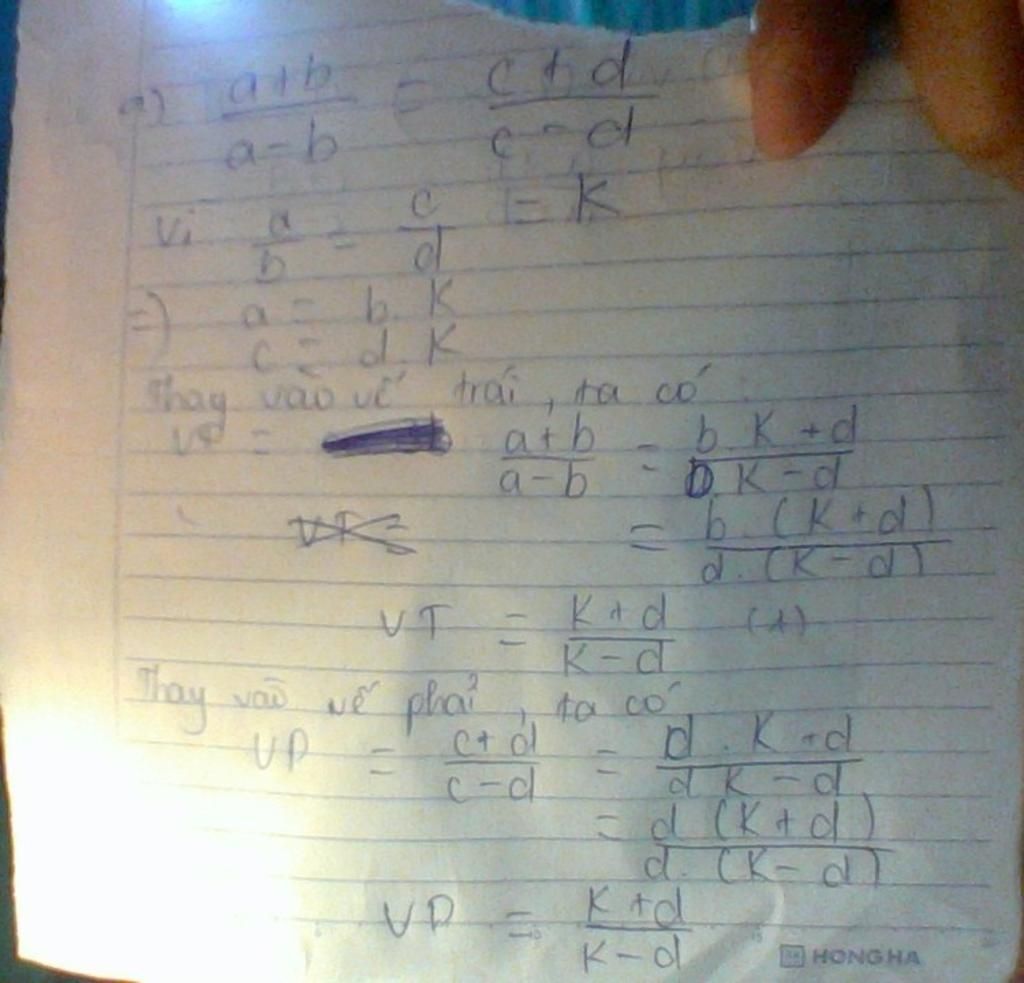 a) a+b/a-b = c+d/c-d
Vì a/b = c/d = K
=) a = b. K
c = d. K
Thay vào vế trái, ta có
VT = a+b/a-b = b.K+d/b.K-d
VT =
= b.(K+d)/d.(K-d)
VT = K+d/K-d (1)
Thay vào vế phải, ta có
VP = c+d/c-d = d.K+d/d K-d
= d (K+d)/d.(K-d)
VP = K+d/K-d
HONG HA